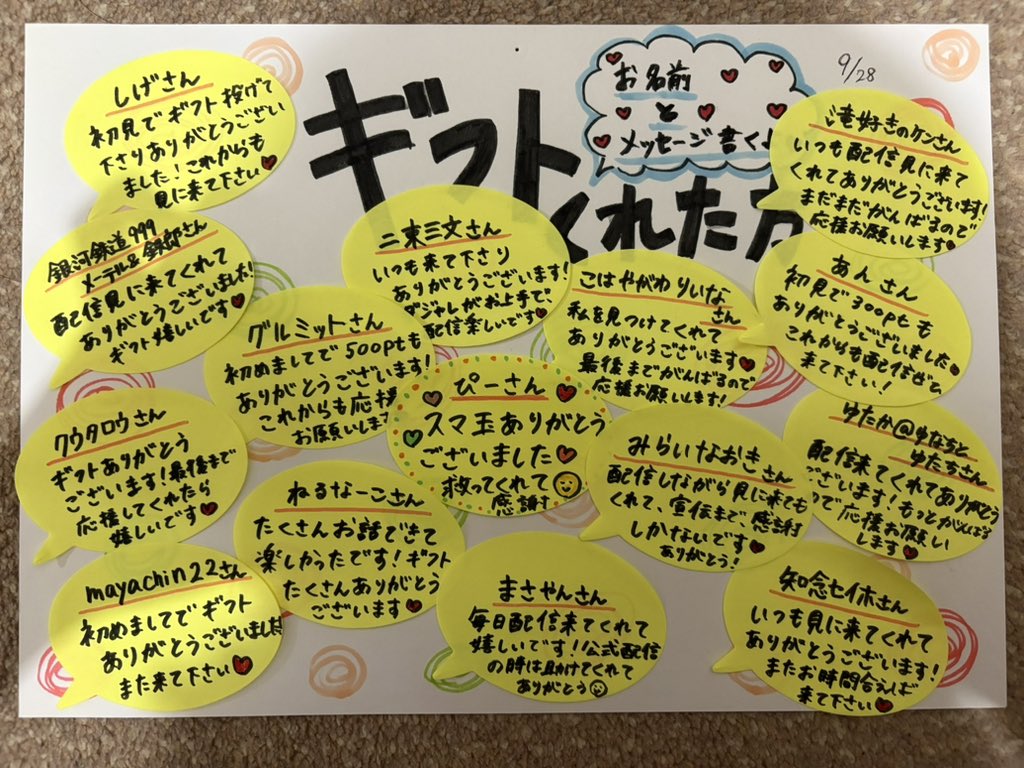 9/28
お名前
と
メッセージ書くよ
ギフトくれた方
しげさん
初見でギフト投げて
下さりありがとうござい
ました！これからも
見に来て下さい
滝好きのケンさん
いつも配信見に来て
くれてありがとうございます！
まだまだがんばるので
応援お願いします
銀河鉄道999
メーテル&鉄郎さん
配信見に来てくれて
ありがとうございました!
ギフト嬉しいです
二束三文さん
いつも来て下さり
ありがとうございます！
ダジャレがお上手で、
配信楽しいです
こはやがわりいな
さん
私を見つけてくれて
ありがとうございます
最後までがんばるので
応援お願いします!
あんさん
初見で300ptも
ありがとうございました
これからも配信
来て下さい！
グルミットさん
初めましてで500ptも
ありがとうございます!
これからも応援
お願いします
ぴーさん
スマ玉ありがとう
ございました
救ってくれて
感謝す
クウタロウさん
ギフトありがとう
ございます!最後まで
応援してくれたら
嬉しいです
ねるなーこさん
たくさんお話できて
楽しかったです！ギフト
たくさんありがとう
ございます
みらいなおきさん
配信しながら見に来ても
くれて、宣伝まで、感謝
しかないです
ありがとう！
ゆたか@ゆなちと
ゆたちさん
配信来てくれてありがとう
ございます！もっとがんばる
ので応援お願い
します
mayachin22さん
初めましてでギフト
ありがとうございました
また来て下さい
まさやんさん
毎日配信来てくれて
嬉しいです!!公式配信
の時は助けてくれて
ありがとう
知念七イホさん
いつも見に来てくれて
ありがとうございます！
またお時間合えば
来て下さい